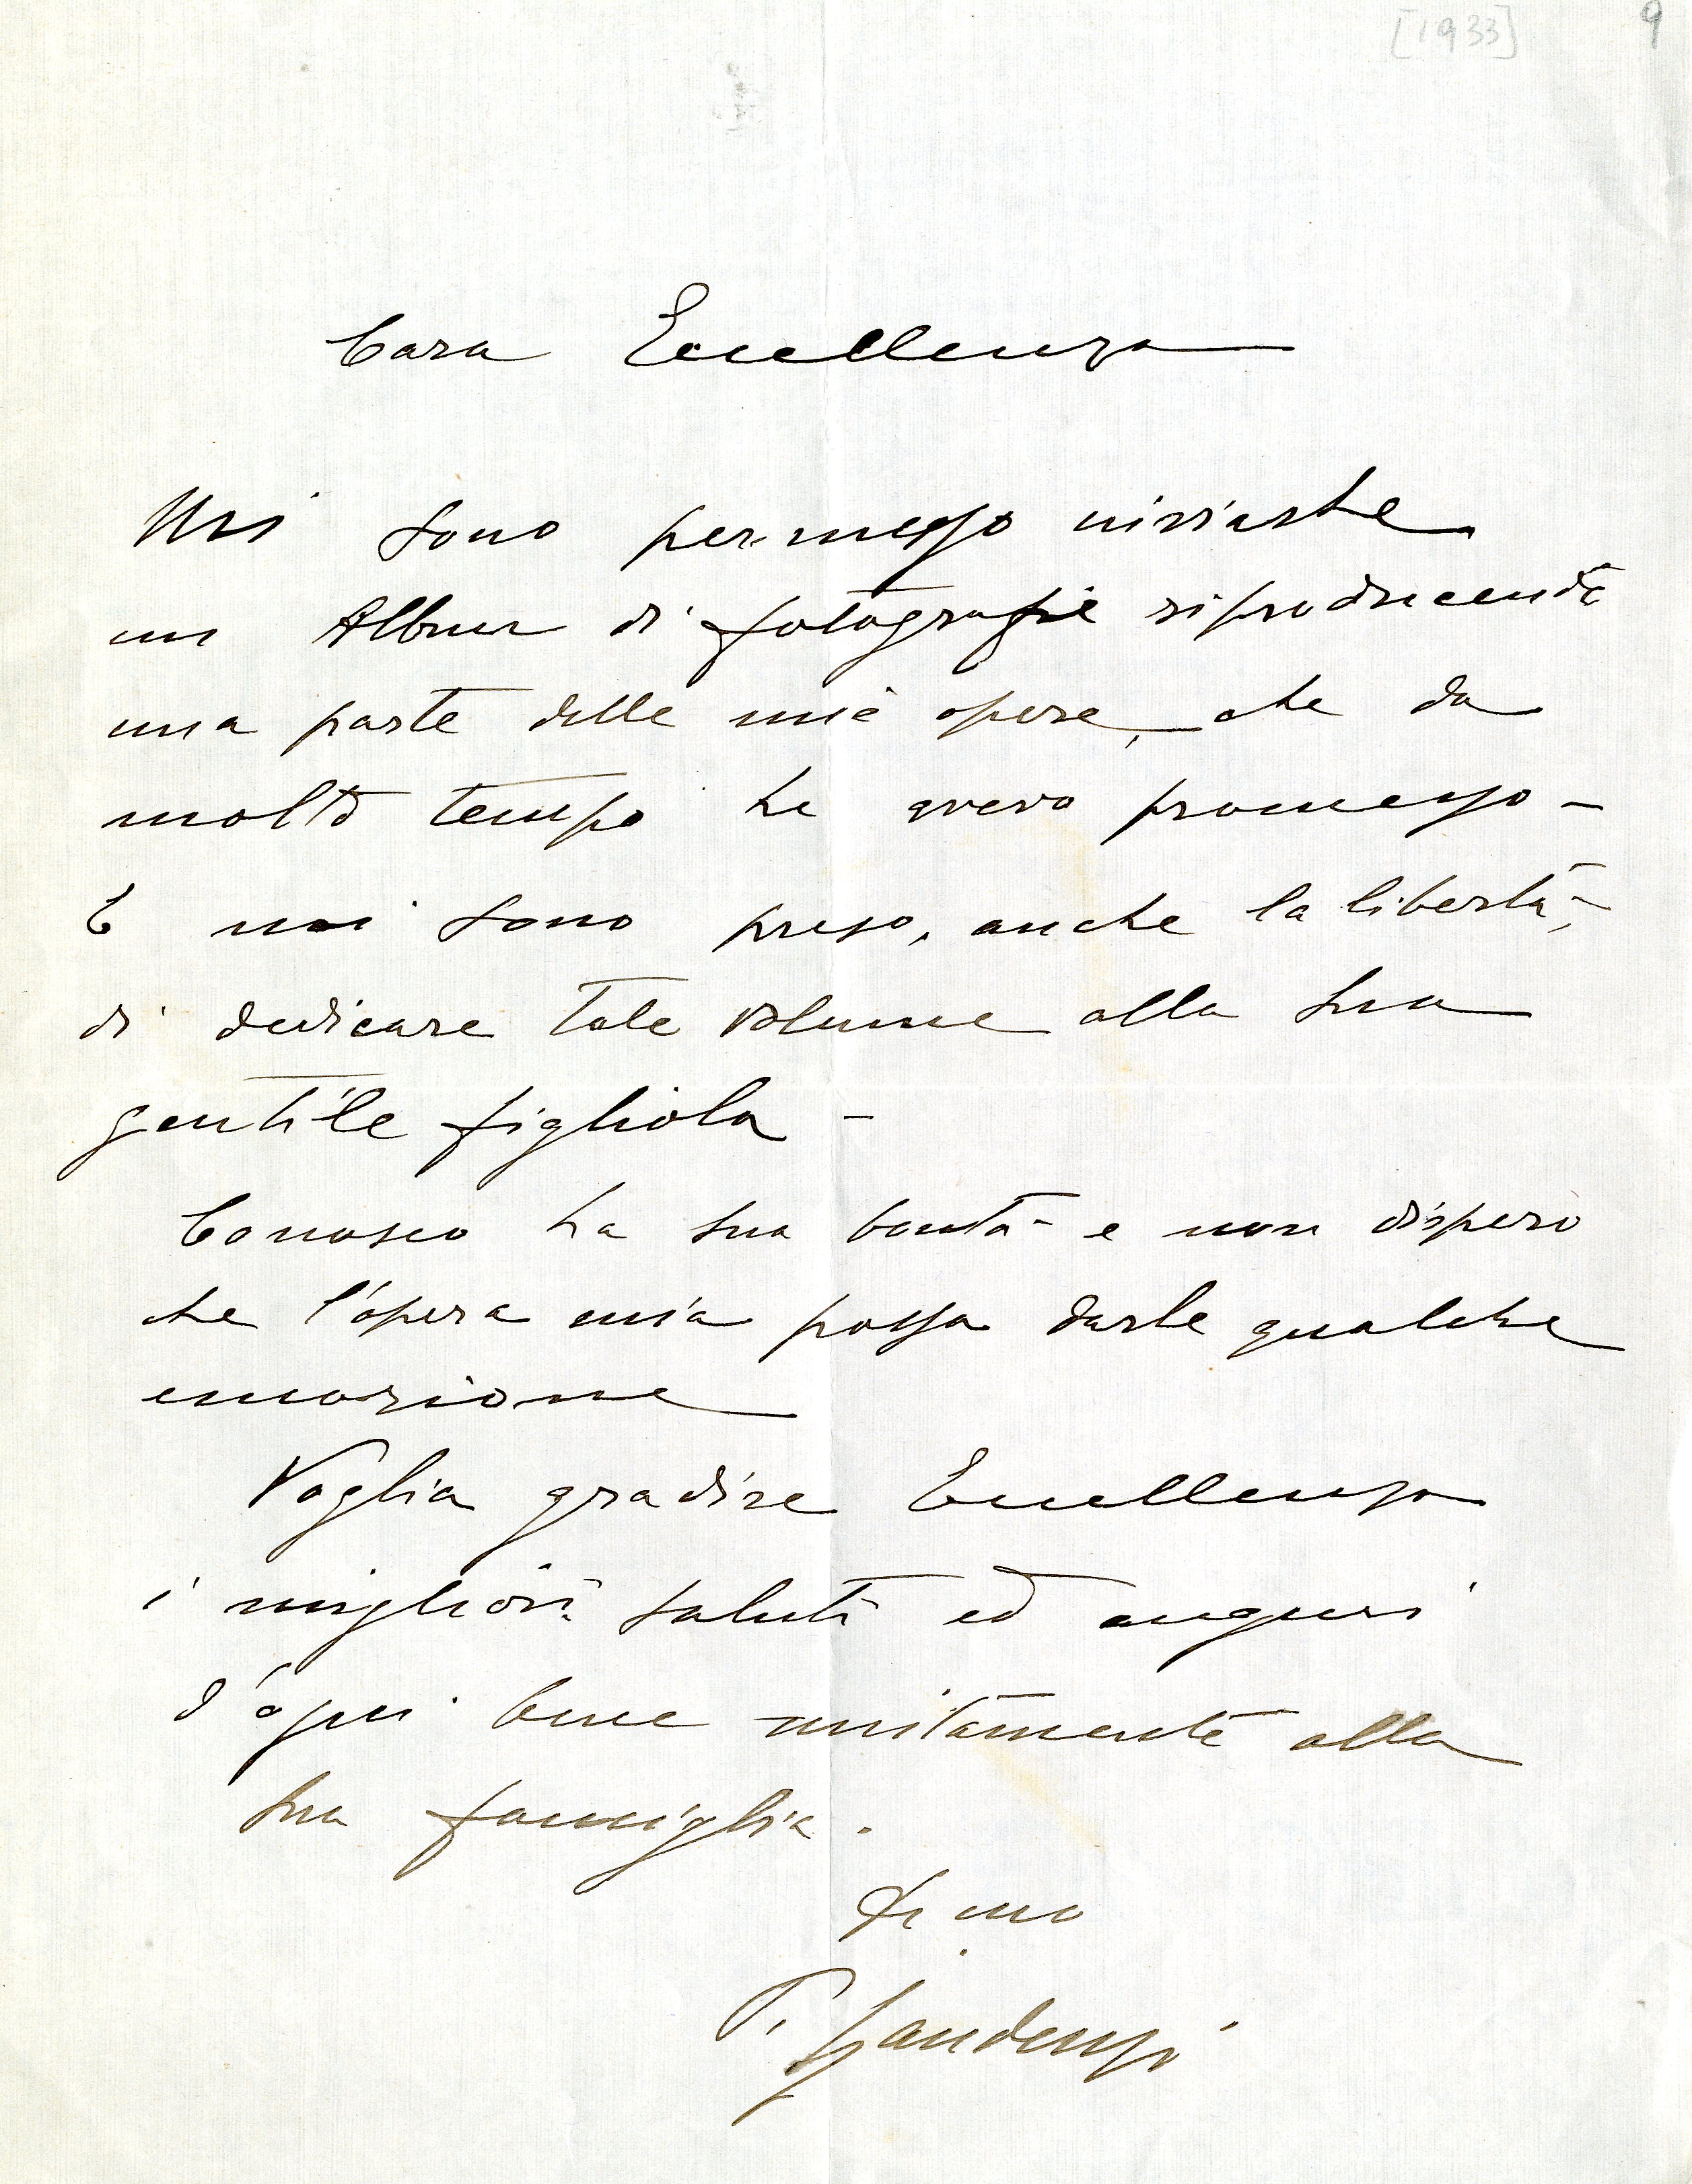 [1933]
9
Cara Eccellenza
Mi sono permesso inviarle
un Album di fotografie riproducenti
una parte delle mie opere, che da
molto tempo Le avevo promesso -
E mi sono preso, anche la libertà,
di dedicare tale volume alla Sua
gentile figliola -
Conosco La Sua bontà e non dispero
che l'opera mia possa darle qualche
emozione
Voglia gradire Eccellenza
i migliori saluti ed auguri
d'ogni bene unitamente alla
Sua famiglia.
P. Gaudenzi